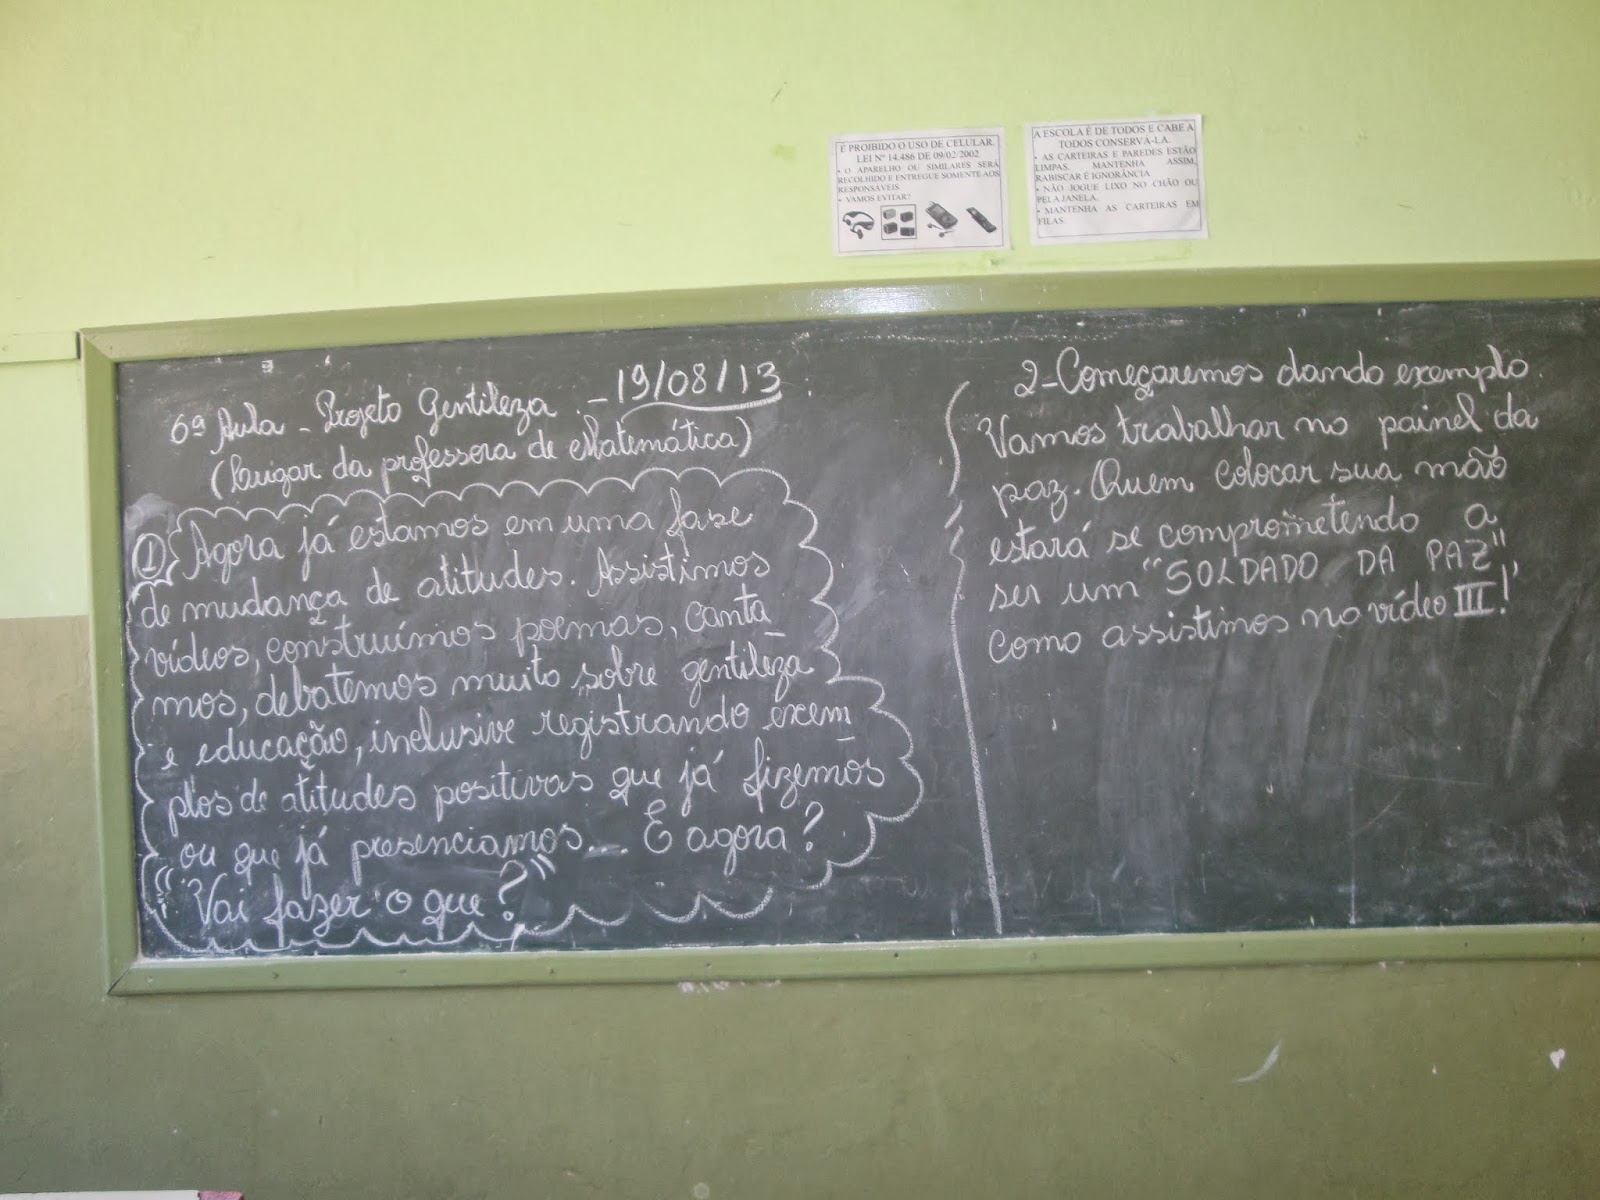 É PROIBIDO O USO DE CELULAR.
LEI Nº 14.486 DE 09/02/2002
• O APARELHO OU SIMILARES SERÁ
RECOLHIDO E ENTREGUE SOMENTE AOS
RESPONSÁVEIS
• VAMOS EVITAR?
A ESCOLA É DE TODOS E CABE A
TODOS CONSERVÁ-LA.
• AS CARTEIRAS E PAREDES ESTÃO
LIMPAS. MANTENHA ASSIM,
RABISCAR É IGNORÂNCIA
• NÃO JOGUE LIXO NO CHÃO OU
PELA JANELA.
• MANTENHA AS CARTEIRAS EM
FILAS.
6ª Aula - Projeto Gentileza - 19/08/13
(lugar da professora de Matemática)
① Agora já estamos em uma fase
de mudança de atitudes. Assistimos
vídeos, construímos poemas, canta_
mos, debatemos muito sobre gentileza
e educação, inclusive registrando exem_
plos de atitudes positivas que já fizemos
ou que já presenciamos... E agora?
"Vai fazer o que?"
2-Começaremos dando exemplo.
Vamos trabalhar no painel da
paz. Quem colocar sua mão
estará se comprometendo a
ser um "SOLDADO DA PAZ",
como assistimos no vídeo III!